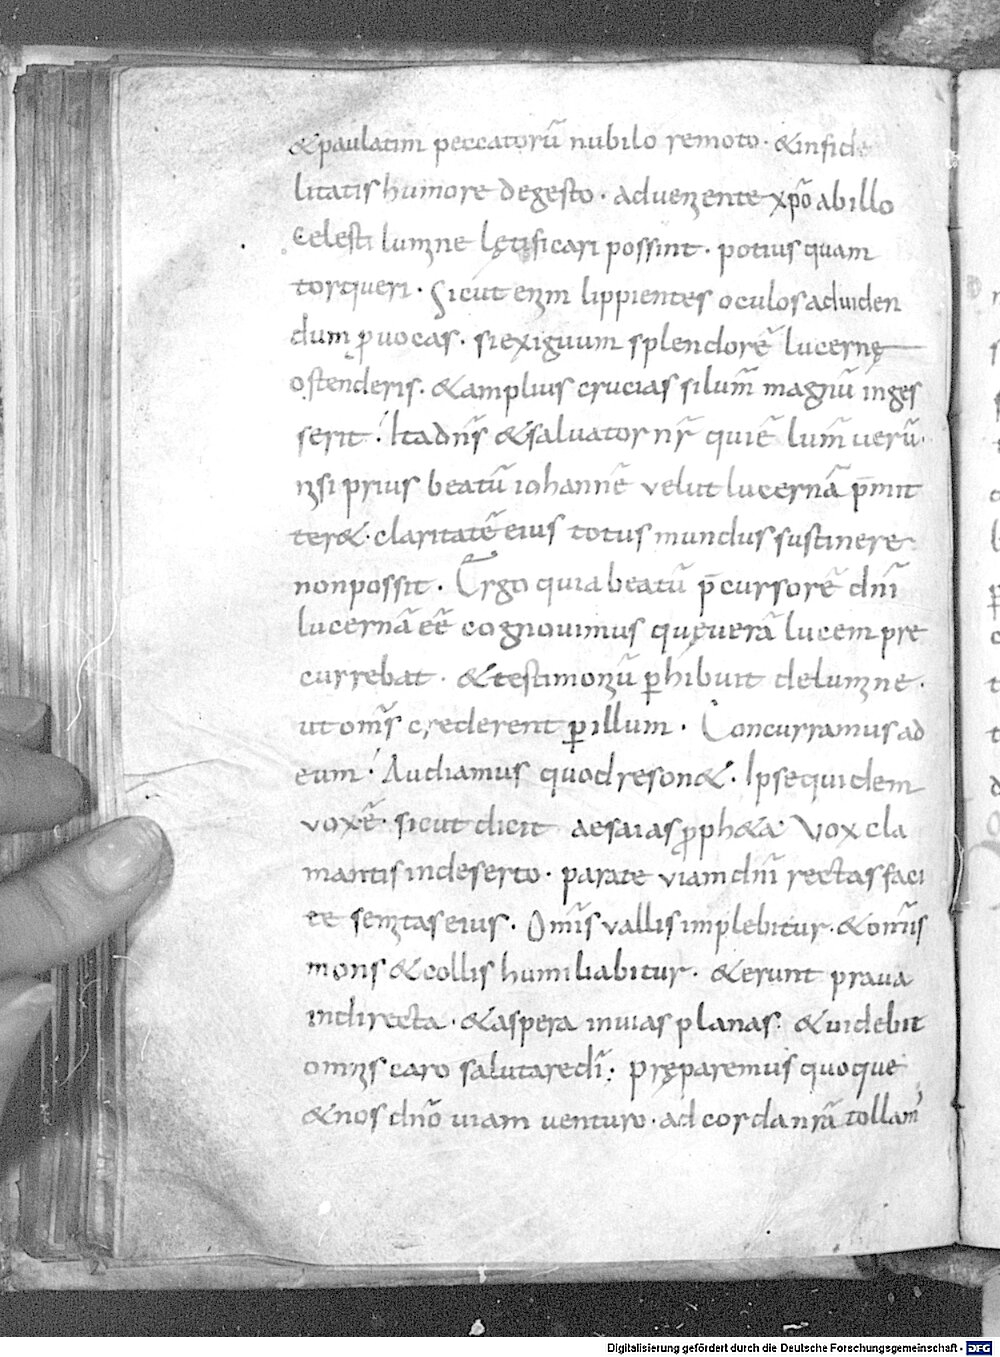 &paulatim peccatorū nubilo remoto · &infide
litatis humore degesto · adueniente xpō abillo
celesti lumine lętificari possint · potius quam
torqueri · Sicut enim lippientes oculos aduiden
dum ꝓuocas · si exiguum splendorē lucernę
ostenderis · &amplius crucias si lum̄ magnū inges
serit · Ita dn̄s &saluator nr̄ qui ē lum̄ uerū ·
nisi prius beatū iohannē velut lucernā p̄mit
ter& · claritatē eius totus mundus sustinere
non possit · Ergo quia beatū p̄cursorē dn̄i
lucernā eē̄ cognouimus quę uerā lucem pre
currebat · &testimoniū ꝑhibuit de lumine ·
ut om̄s crederent ꝑ illum · Concurramus ad
eum · Audiamus quod reson& · Ipse quidem
vox ē · sicut dicit aesaias ꝓph&a · Vox cla
mantis in deserto · parate viam dn̄i rectas faci
te semitas eius · Om̄is vallis implebitur · &om̄is
mons &collis humiliabitur · &erunt praua
indirecta · &aspera inuias planas · &uidebit
omnis caro salutare dī · pręparemus quoque
&nos dn̄o uiam venturo · ad corda nr̄a tollam'
Digitalisierung gefördert durch die Deutsche Forschungsgemeinschaft - DFG